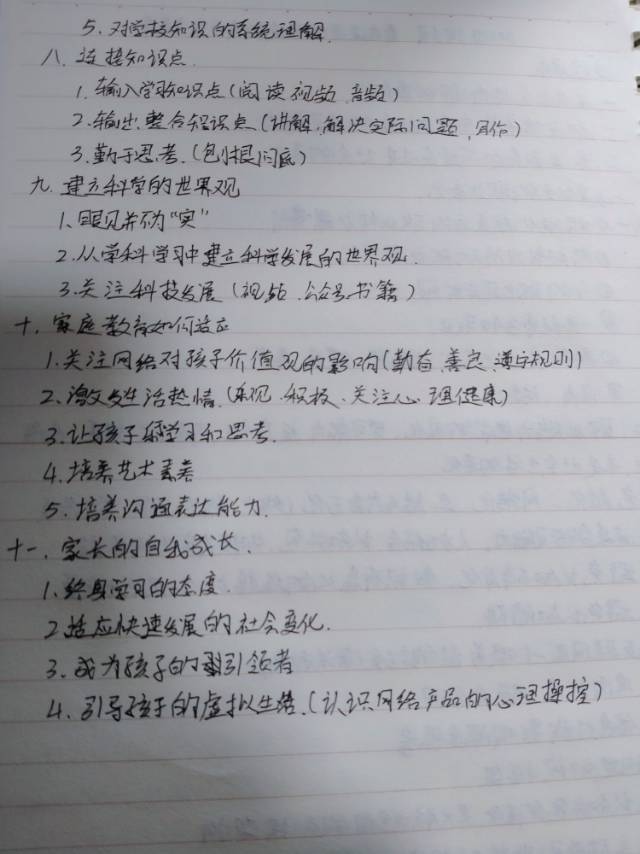 5. 对学校知识的系统理解.
八. 连接知识点.
1. 输入学习知识点(阅读 视频 音频)
2. 输出. 整合知识点(讲解, 解决实际问题, 写作)
3. 勤于思考. (刨根问底)
九. 建立科学的世界观
1. 眼见并不为“实”
2. 从学科学习中建立科学发展的世界观.
3. 关注科技发展(视频. 公众号 书籍)
十. 家庭教育如何适应
1. 关注网络对孩子价值观的影响(勤奋 善良 遵守规则)
2. 激发生活热情. (乐观. 积极. 关注心理健康)
3. 让孩子 学习和思考.
4. 培养艺术素养
5. 培养沟通表达能力.
十一. 家长的自我成长.
1. 终身学习的态度.
2. 适应快速发展的社会变化.
3. 成为孩子的引领者
4. 引导孩子的虚拟生活. (认识网络产品的心理操控)